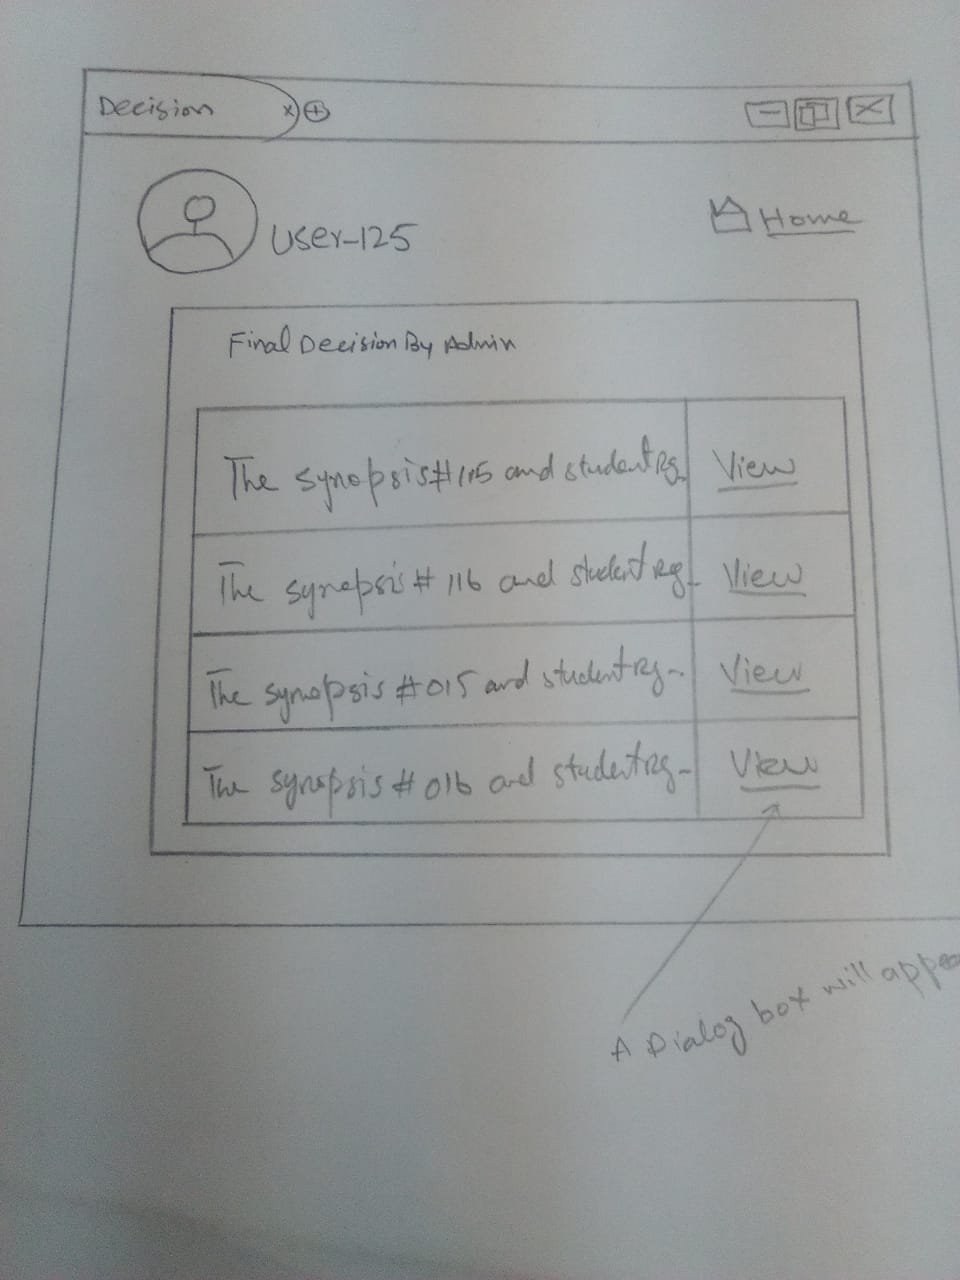 Decision x
User-125
Home
Final Decision By Admin
The synopsis #115 and student Rg. View
The synopsis # 116 and student Reg- View
The synopsis #015 and student Rg-. View
The synopsis # 016 and student Rg- View
A Dialog box will appea